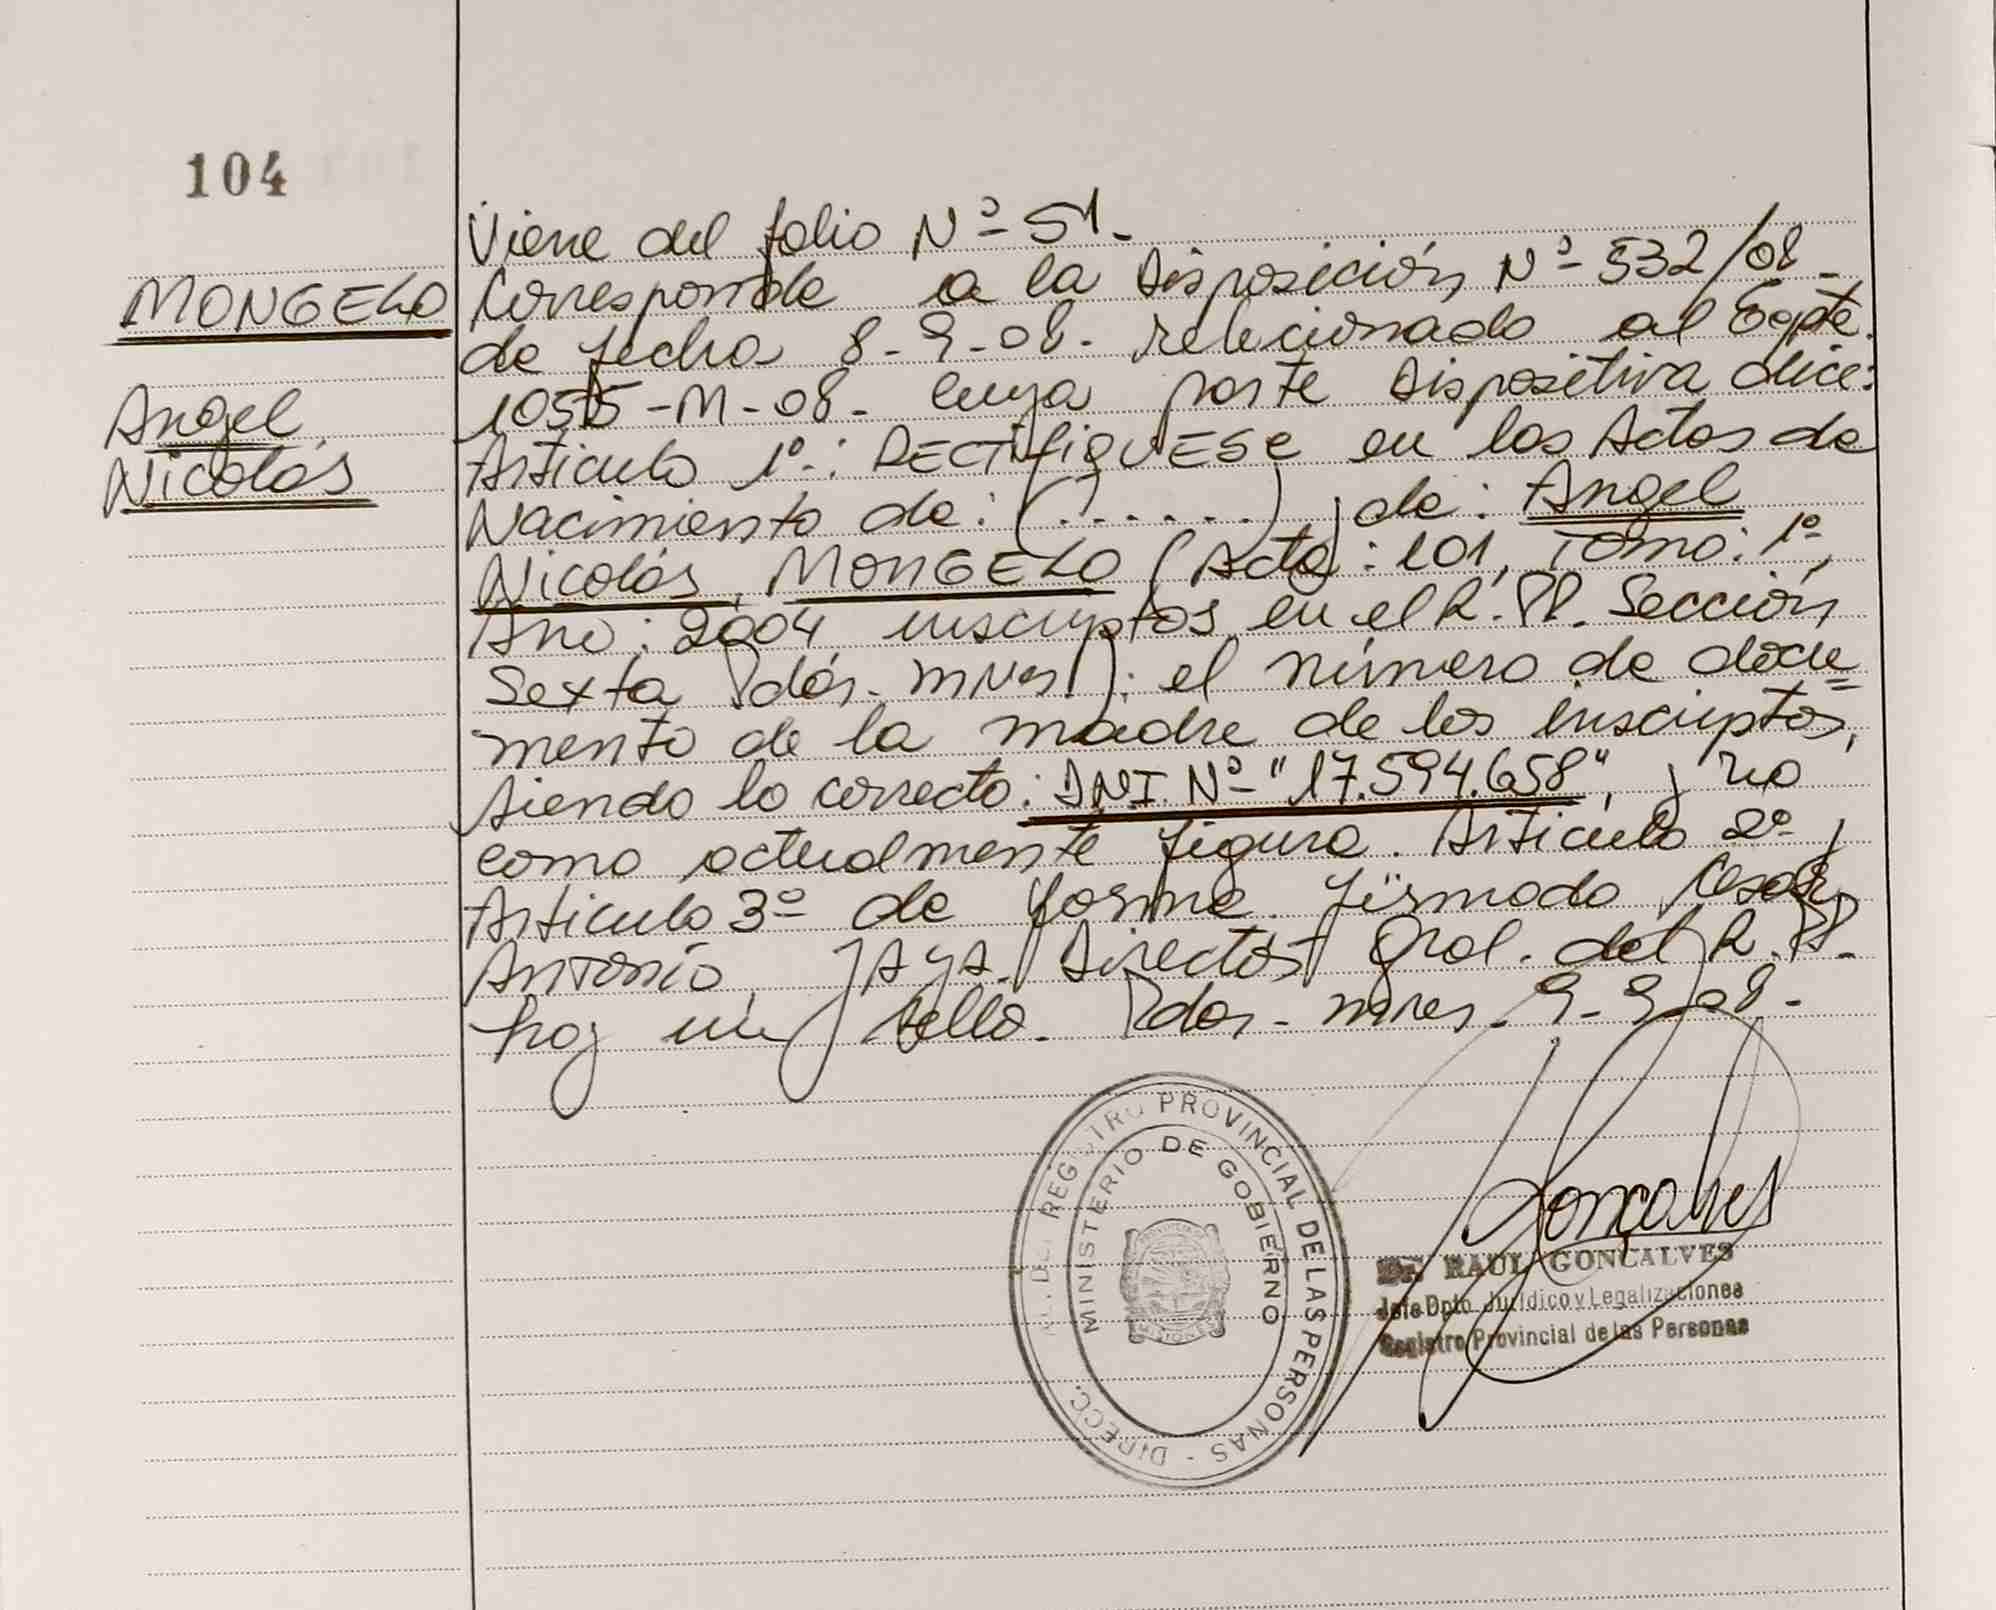 104
Viene del folio Nº 51-
MONGELO
Corresponde a la Disposición Nº 532/08-
de fecha 8-9-08- relacionado al Expte.
Angel
1055-M-08- cuya parte dispositiva dice:
Nicolás
Articulo 1º: RECTIFIQUESE en las Actas de
Nacimiento de: (.......) y de: Angel
Nicolás, MONGELO (Acta: 101, Tomo: 1º,
Año: 2004, inscriptos en el R.PP. Sección
Sexta Pdas. Mnes): el número de docu=
mento de la madre de los inscriptos,
siendo lo correcto: DNI. Nº "17.594.658", y no
como actualmente figura. Articulo 2º y
Articulo 3º de forma. Firmado Cesar
Antonio, JAYA. Director Gral. del R.PP.
hay un sello. Pdas-mnes-9-9-08-
DIRECC. GRAL. DEL REGISTRO PROVINCIAL DE LAS PERSONAS -
MINISTERIO DE GOBIERNO
MISIONES
Gonçalves
Dr. RAUL GONCALVES
Jefe Dpto. Jurídico y Legalizaciones
Registro Provincial de las Personas